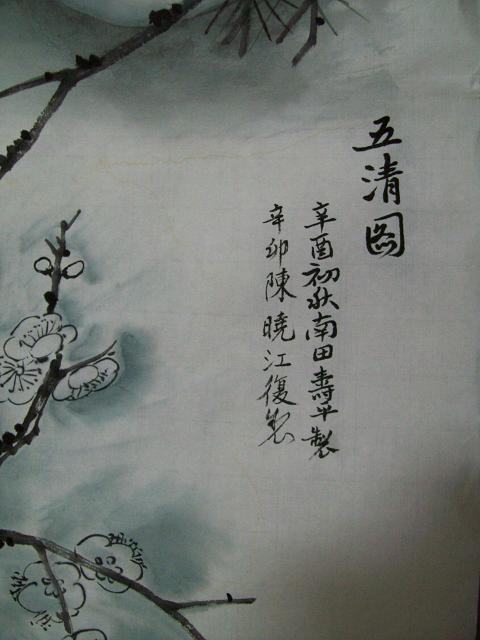 五清図
辛酉初秋南田壽平製
辛卯陳曉江復製